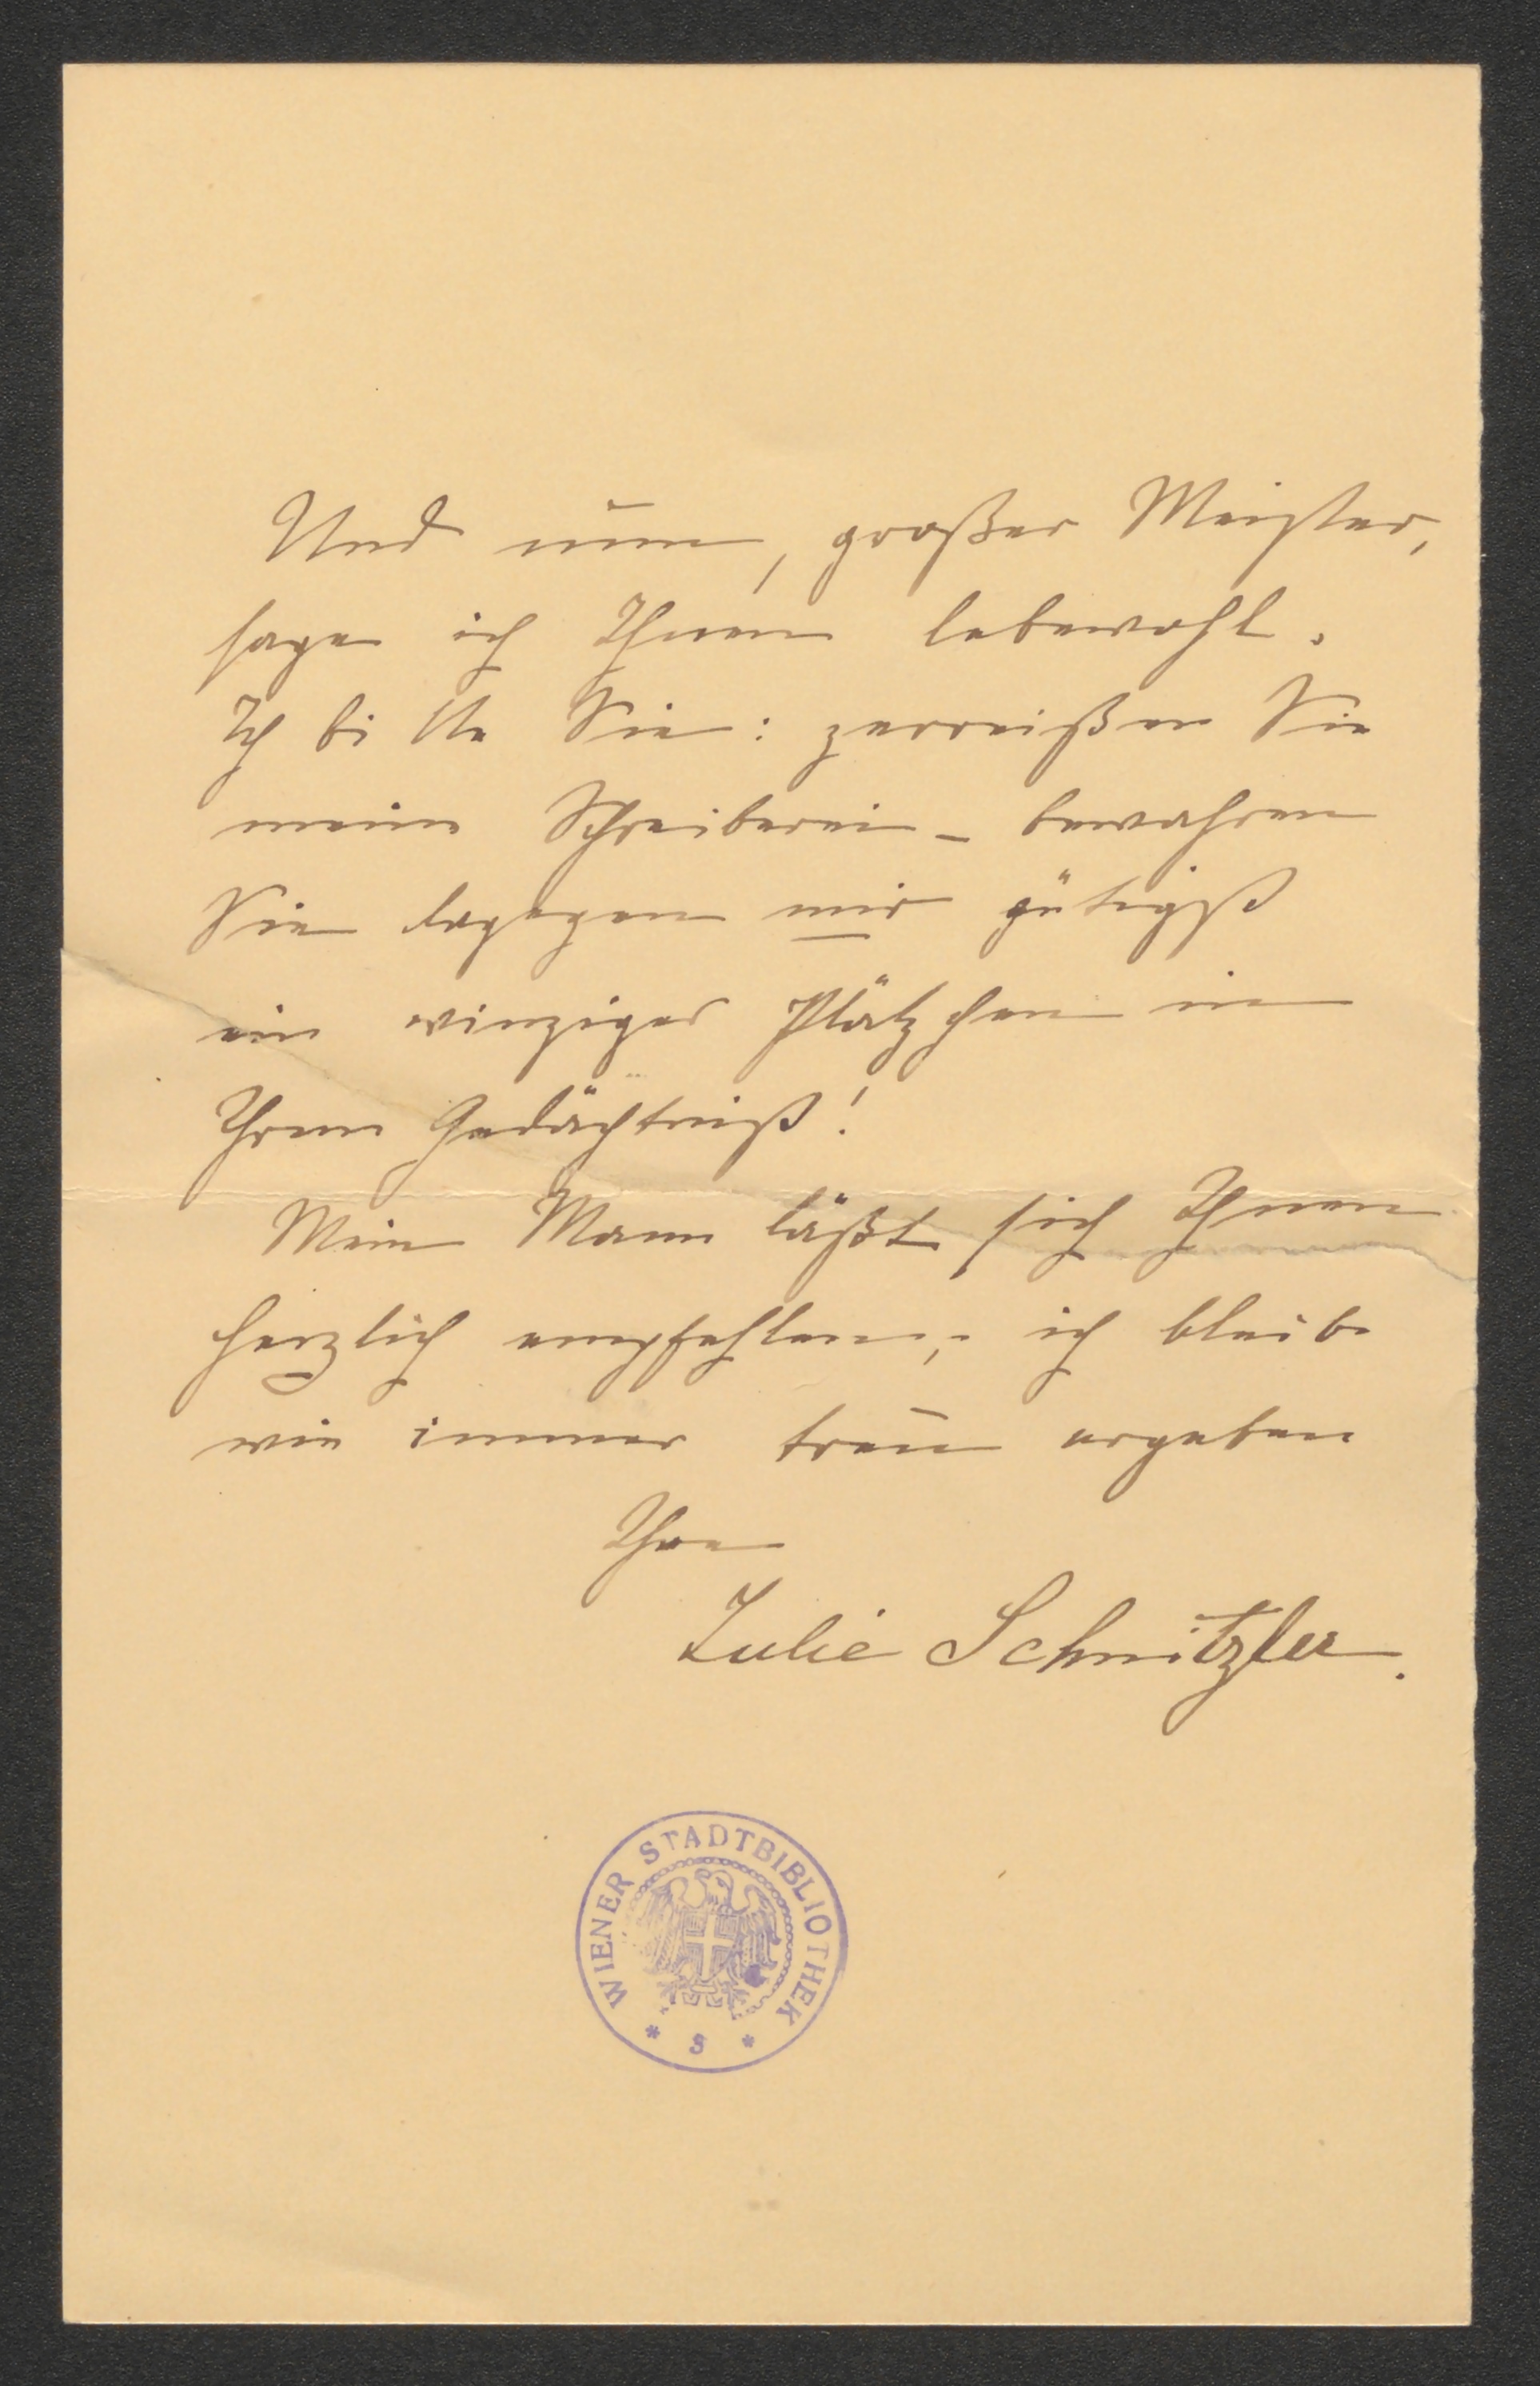 Und nun, großer Meister,
sage ich Ihnen lebewohl.
Ich bitte Sie: zerreißen Sie
meine Schreiberei – bewahren
Sie dagegen mir gütigst
ein winziges Plätzchen in
Ihrem Gedächtniß!
Mein Mann läßt sich Ihnen
herzlich empfehlen; ich bleibe
wie immer treu ergeben
Ihre
Julie Schnitzler.
WIENER STADTBIBLIOTHEK
* S *